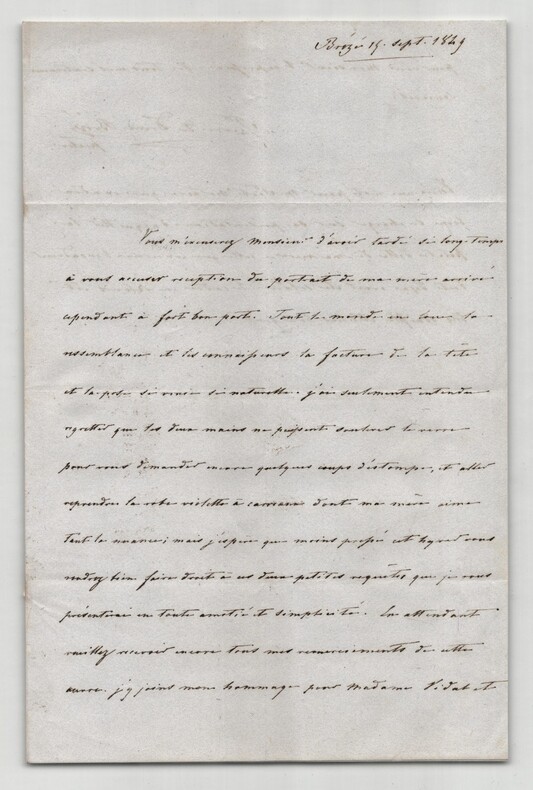 Brézé 15. sept. 1849
Vous m'excuserez Monsieur d'avoir tardé si long-temps
à vous accuser réception du portrait de ma mère arrivé
cependant à fort bon port. Tout le monde en loue la
ressemblance et les connaisseurs la facture de la tête
et la pose si vraie si naturelle. j'ai seulement entendu
regretter que les deux mains ne puissent soulever le verre
pour vous demander encore quelques coups d'estompe, et aller
reprendre la robe violette à carreaux dont ma mère aime
tant la nuance; mais j'espère que moins pressé cet hyver vous
voudrez bien faire droit à ces deux petites requêtes que je vous
présenterai en toute amitié et simplicité. En attendant
veuillez recevoir encore tous mes remerciements de cette
œuvre. j'y joins mon hommage pour Madame Vidal et